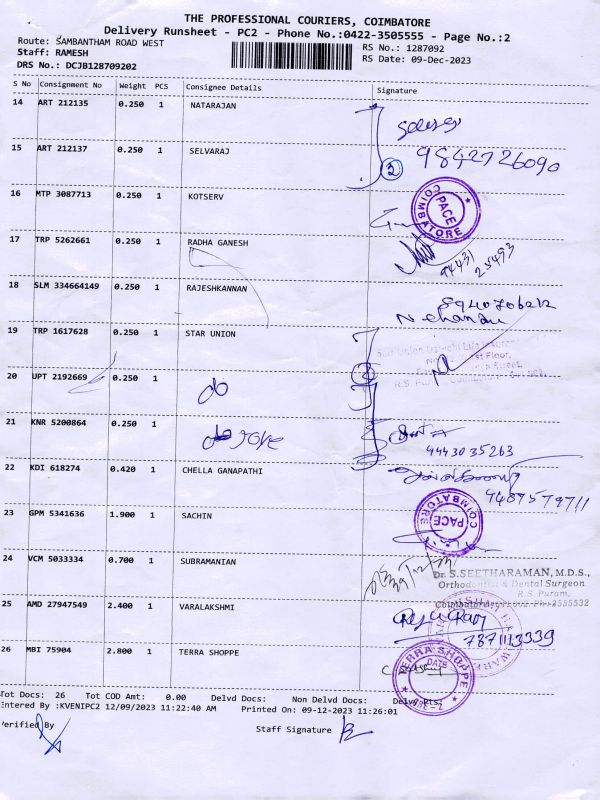 THE PROFESSIONAL COURIERS, COIMBATORE
Delivery Runsheet - PC2 - Phone No.:0422-3505555 - Page No.:2
Route: SAMBANTHAM ROAD WEST
RS No.: 1287092
Staff: RAMESH
RS Date: 09-Dec-2023
DRS No.: DCJB128709202
S No Consignment No Weight PCS Consignee Details Signature
14 ART 212135 0.250 1 NATARAJAN
15 ART 212137 0.250 1 SELVARAJ
2
9842726090
16 MTP 3087713 0.250 1 KOTSERV
COIMBATORE PACE
17 TRP 5262661 0.250 1 RADHA GANESH
94431
25493
18 SLM 334664149 0.250 1 RAJESHKANNAN
8940706212
N Chandru
19 TRP 1617628 0.250 1 STAR UNION
20 UPT 2192669 0.250 1
do
2
21 KNR 5200864 0.250 1
do
9443035263
22 KDI 618274 0.420 1 CHELLA GANAPATHI
9487579711
23 GPM 5341636 1.900 1 SACHIN
COIMBATORE PACE
24 VCM 5033334 0.700 1 SUBRAMANIAN
Dr. S.SEETHARAMAN, M.D.S.,
Orthodontist & Dental Surgeon
R.S. Puram,
25 AMD 27947549 2.400 1 VARALAKSHMI
7871113339
26 MBI 75904 2.800 1 TERRA SHOPPE
TERRA SHOPPE
DATE
Tot Docs: 26 Tot COD Amt: 0.00 Delvd Docs: Non Delvd Docs: Delvd Pts:
Entered By :KVENIPC2 12/09/2023 11:22:40 AM Printed On: 09-12-2023 11:26:01
Verified By
Staff Signature